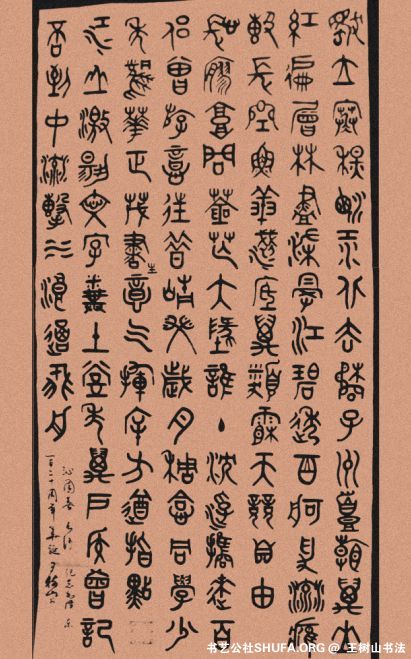 獨立寒秋湘江北去橘子洲頭看萬山
紅遍層林盡染漫江碧透百舸爭流鷹
擊長空魚翔淺底萬類霜天競自由
悵寥廓問蒼茫大地誰主沉浮攜來百
侶曾游憶往昔崢嶸歲月稠恰同學少
年風華正茂書生意氣揮斥方遒指點
江山激揚文字糞土當年萬戶侯曾記
否到中流擊水浪遏飛舟
沁園春 長沙 紀念毛澤東
一百二十周年
书艺公社SHUFA.ORG @ 王树山书法